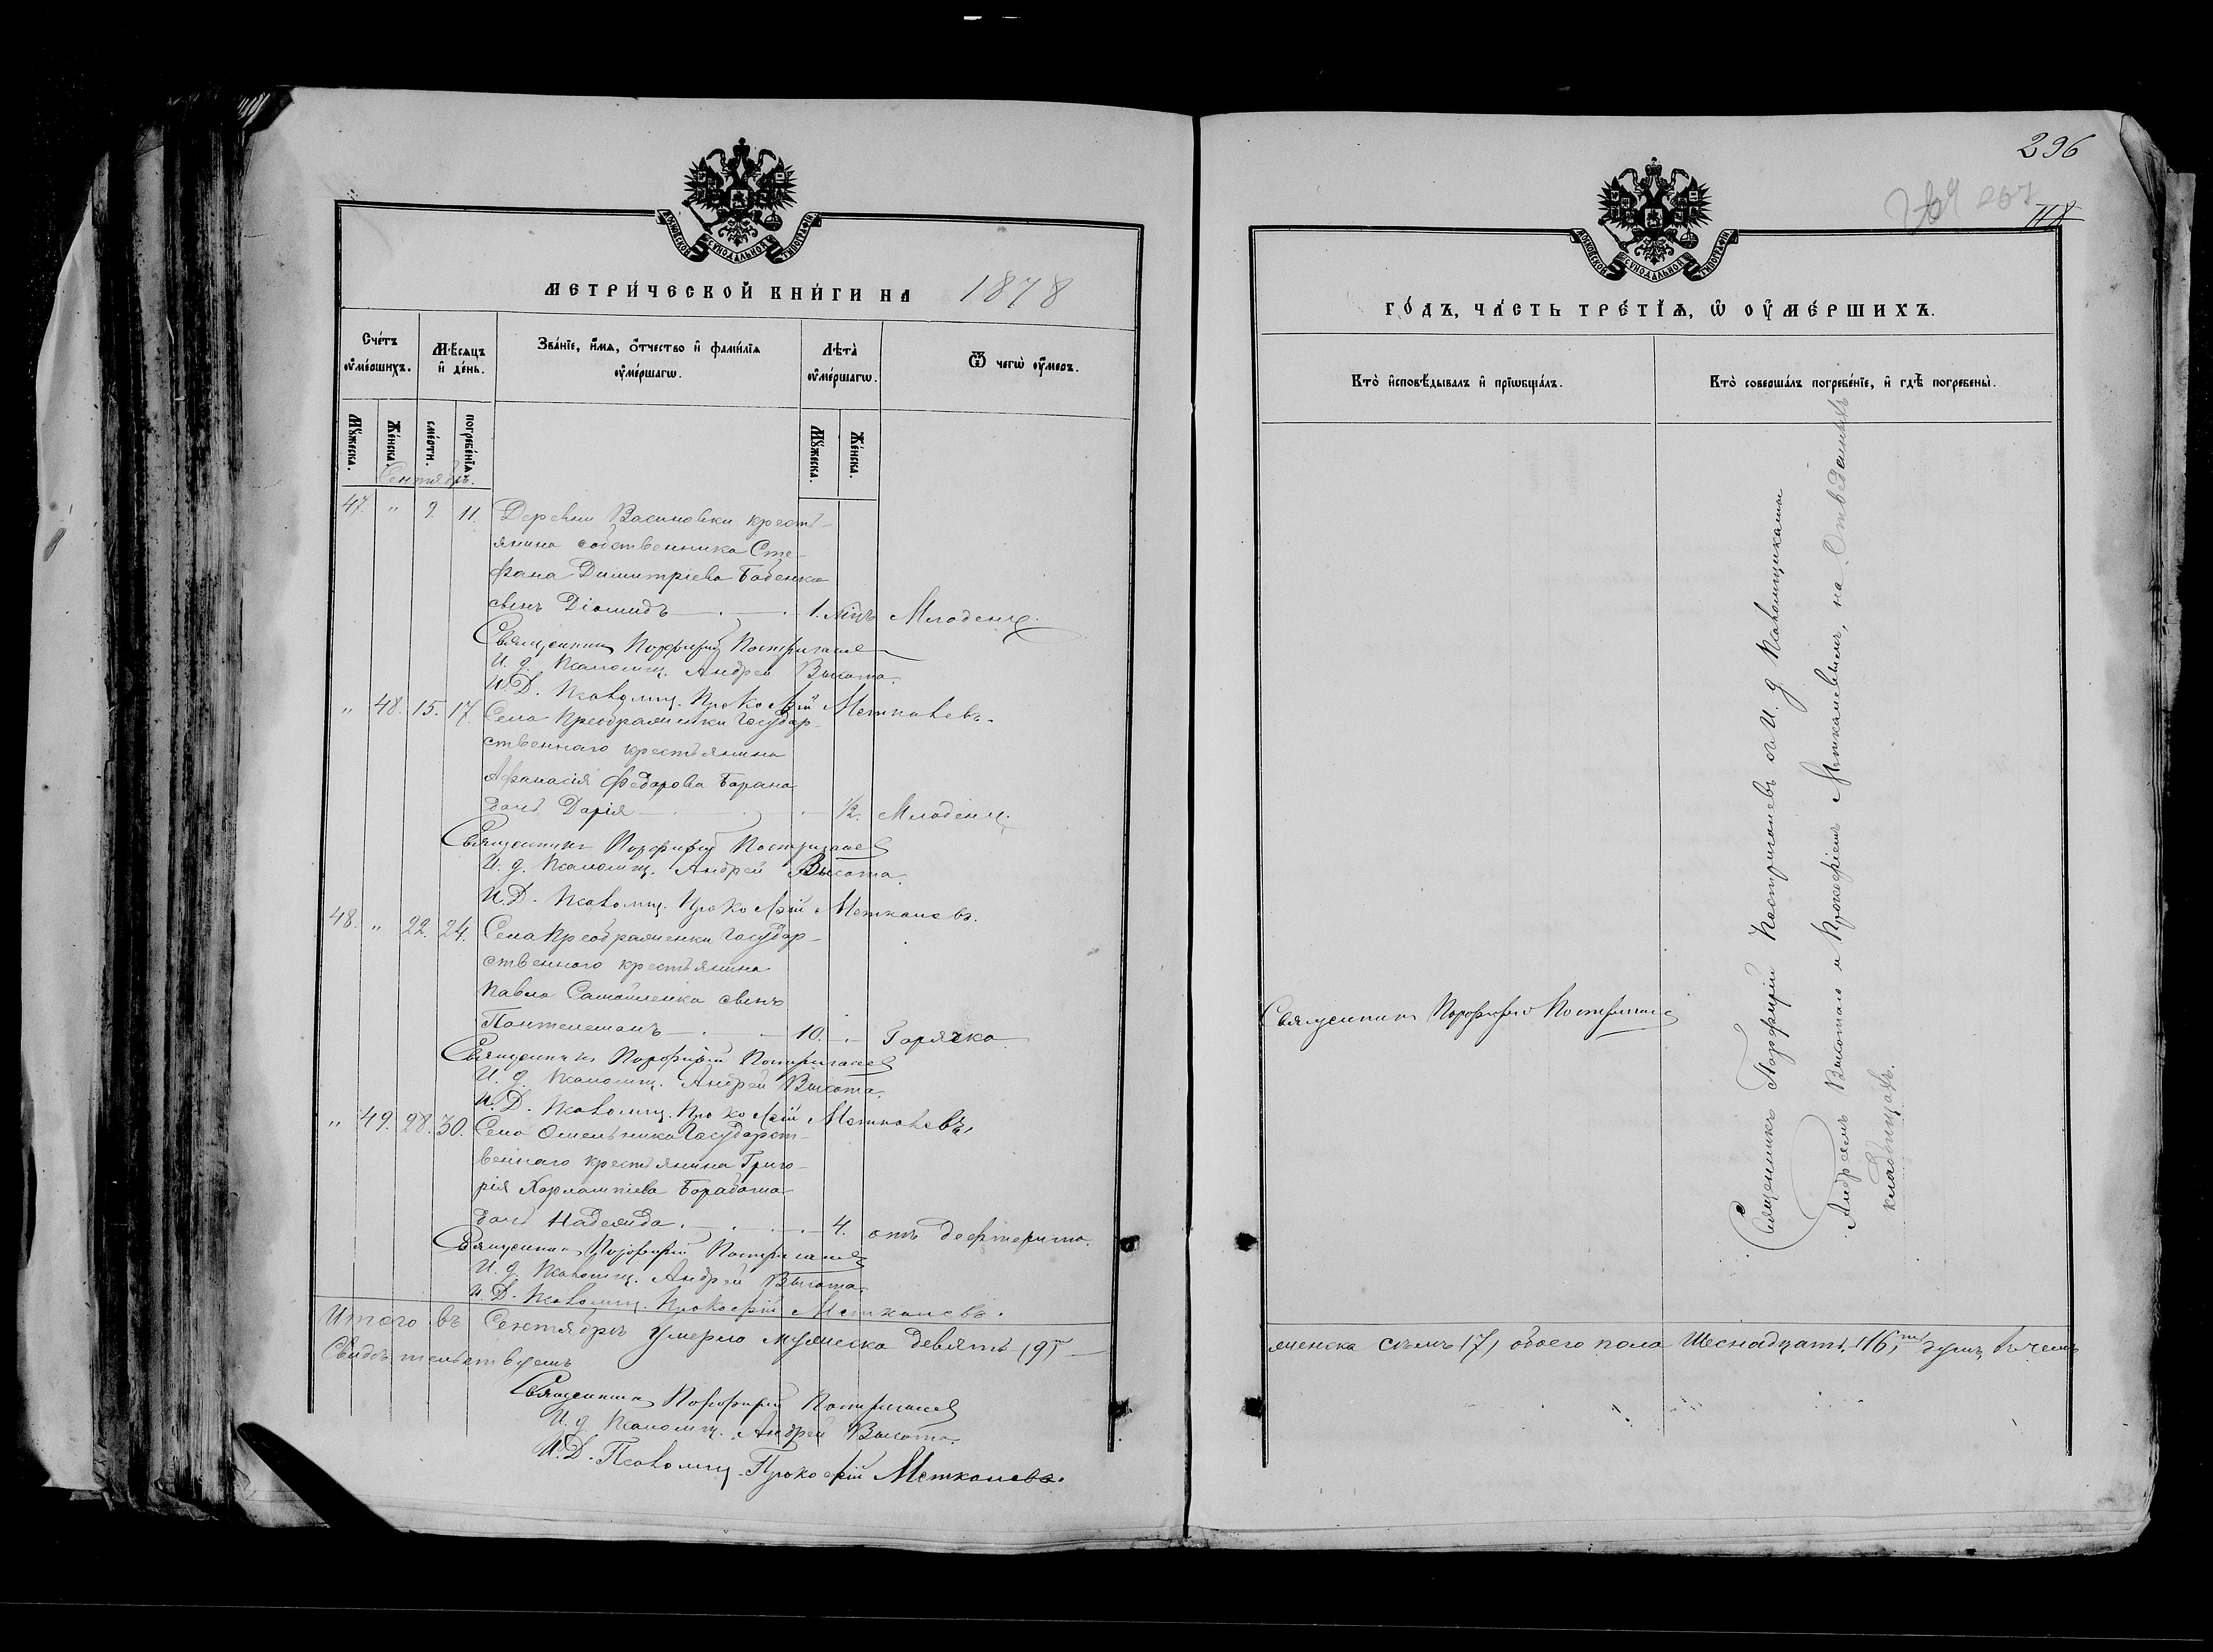 296
МОСКОВСКОЙ СѴНОДАЛЬНОЙ ТИПОГРАФІИ
МЕТРИ́ЧЕСКОЙ КНИ́ГИ НА 1878
Сче́тъ оу҆ме́ршихъ.
Мѣ́сяцъ и҆ де́нь.
Зва́нїе, и҆́мѧ, ѻ҆́тчество и҆ фами́лїѧ оу҆ме́ршагѡ.
Лѣта̀ оу҆ме́ршагѡ.
Ѿ чегѡ̀ оу҆́меръ.
Мꙋ́жеска.
Же́нска.
сме́рти.
погребе́нїѧ.
Мꙋ́жеска.
Же́нска.
Сентябрь.
47. " 9. 11. Деревни Васиновки кресть-
янина собственника Сте-
фана Димитріева Бабенка
сынъ Діомидъ 1. мцъ Младенч.
Священникъ Порфирій Постригачев
И. д. Псаломщ. Андрей Высота.
И. Д. Псаломщ. Прокофій Меткалевъ.
" 48. 15. 17. Села Преображенки Государ-
ственнаго крестьянина
Афанасія Федорова Барана
дочь Дарія 1/2. Младенч.
Священникъ Порфирій Постригачев
И. д. Псаломщ. Андрей Высота.
И. Д. Псаломщ. Прокофій Меткалевъ.
48. " 22. 24. Села Преображенки Государ-
ственнаго крестьянина
Павла Самойленка сынъ
Пантелеманъ 10. Горячка
Священникъ Порфирій Постригачев
И. д. Псаломщ. Андрей Высота.
И. Д. Псаломщ. Прокофій Меткалевъ.
" 49. 28. 30. Села Омельника Государст-
веннаго крестьянина Григо-
рія Харлампіева
дочь Надежда 4. отъ дефтерита.
Священникъ Порфирій Постригачев
И. д. Псаломщ. Андрей Высота.
И. Д. Псаломщ. Прокофій Меткалевъ.
Итого въ Сентябрѣ умерло мужеска девять (9)
Свидѣтельствуемъ
Священникъ Порфирій Постригачев
И. д. Псаломщ. Андрей Высота.
И. Д. Псаломщ. Прокофій Меткалевъ.
МОСКОВСКОЙ СѴНОДАЛЬНОЙ ТИПОГРАФІИ
ГО́ДЪ, ЧА́СТЬ ТРЕ́ТЇѦ, Ѡ҆ ОУ҆МЕ́РШИХЪ.
Кто̀ и҆сповѣ́дывалъ и҆ прїѡбща́лъ.
Кто̀ соверша́лъ погребе́нїе, и҆ гдѣ̀ погребены̀.
Священникъ Порфирій Постригачев
Священникъ Порфирій Постригачевъ съ И. д. Псаломщиками
Андреемъ Высотою и Прокофіемъ Меткалевымъ, на Отведенныхъ
кладбищахъ.
женска семъ (7) обоего пола Шеснадцать (16) душъ, въ чемъ